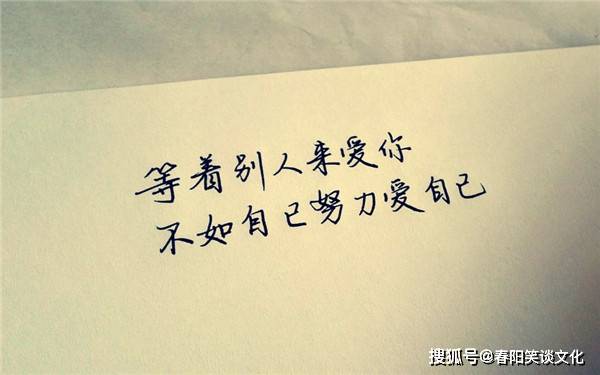 等着别人来爱你
不如自己努力爱自己
搜狐号@春阳笑谈文化